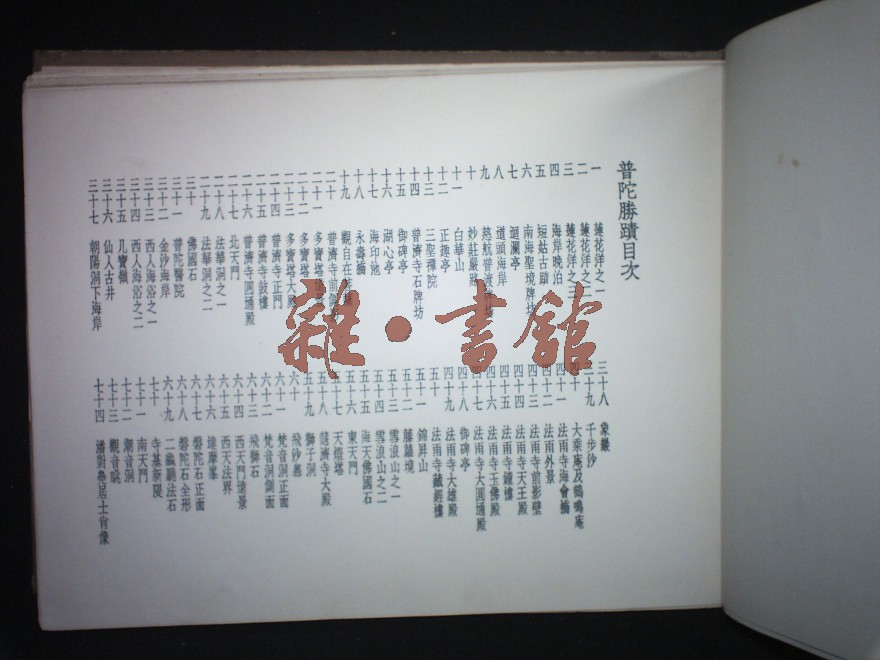 普陀勝蹟目次
一 蓮花洋之一
二 蓮花洋之二
三 蓮花洋之三
四 海岸晚泊
五 短姑古蹟
六 南海聖境牌坊
七 迴瀾亭
八 道頭海岸
九 慈航普渡牌坊
十 妙莊嚴路
十一 白華山
十二 正趣亭
十三 三聖禪院
十四 普濟寺石牌坊
十五 御碑亭
十六 湖心亭
十七 海印池
十八 永壽橋
十九 觀自在
二十 普濟寺前
二十一 多寶塔
二十二 多寶塔
二十三 多寶塔大殿
二十四 普濟寺正門
二十五 普濟寺鼓樓
二十六 普濟寺圓通殿
二十七 北天門
二十八 法華洞之一
二十九 法華洞之二
三十 佛國石
三十一 普陀醫院
三十二 金沙海岸
三十三 西人海浴之一
三十四 西人海浴之二
三十五 几寶嶺
三十六 仙人古井
三十七 朝陽洞下海岸
三十八 象巖
三十九 千步沙
四十 大乘庵及鶴鳴庵
四十一 法雨寺海會橋
四十二 法雨外景
四十三 法雨寺前影壁
四十四 法雨寺天王殿
四十五 法雨寺鐘樓
四十六 法雨寺玉佛殿
四十七 法雨寺大圓通殿
四十八 御碑亭
四十九 法雨寺大雄殿
五十 法雨寺藏經樓
五十一 錦屏山
五十二 藤蘿境
五十三 雪浪山之一
五十四 雪浪山之二
五十五 海天佛國石
五十六 東天門
五十七 天燈塔
五十八 慧濟寺大殿
五十九 獅子洞
六十 飛沙嶴
六十一 梵音洞正面
六十二 梵音洞側面
六十三 飛獅石
六十四 西天門遠景
六十五 西天法界
六十六 達摩峯
六十七 磐陀石正面
六十八 磐陀石全形
六十九 二龜聽法石
七十 寺基新
七十一 南天門
七十二 潮音洞
七十三 觀音眺
七十四 潘對鳧居士肖像
雜·書館